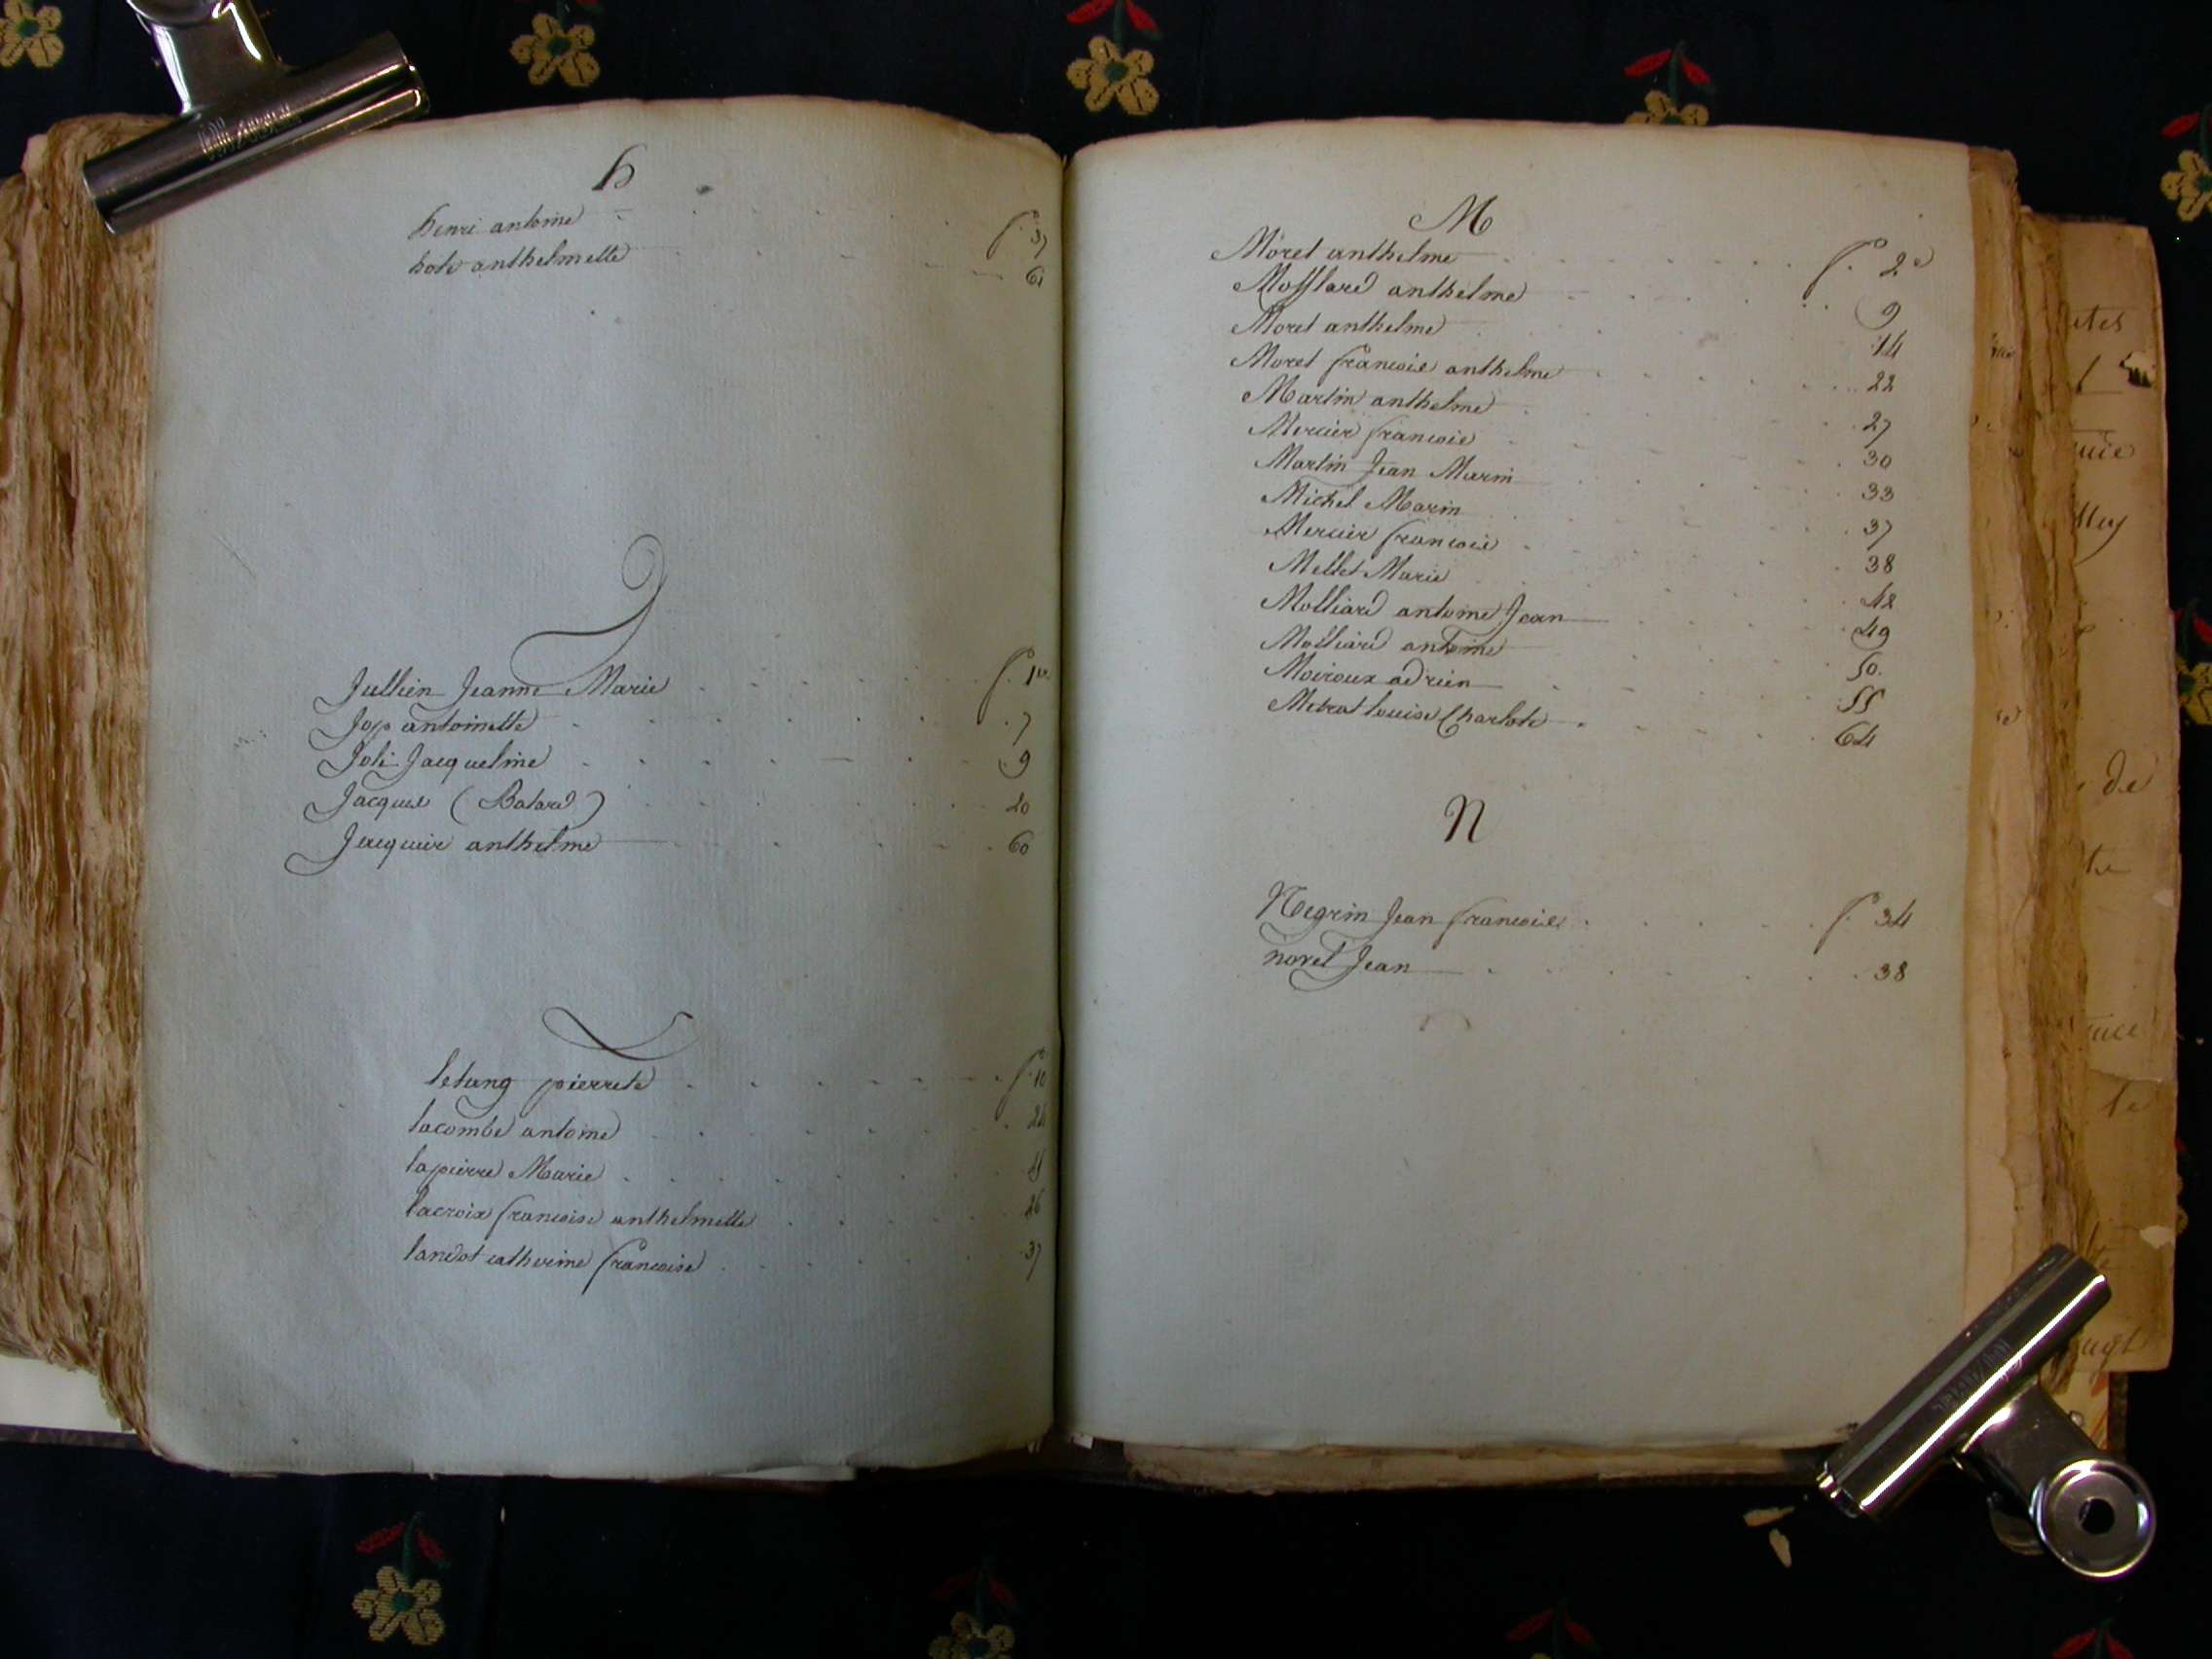 h
henri antoine f.o 37
hote anthelmette 61
J
Jullien Jeanne Marie f.o 1er
Jop antoinette 7
Joli Jacqueline 9
Jacques (Batard) 20
Jacquier anthelme 60
L
letang pierrete f.o 10
lacombe antoine 24
lapierre Marie
lacroix francoise anthelmette 26
landot catherine francoise 37
M
Moret anthelme f.o 2e
Mosslard anthelme 9
Moret anthelme 14
Moret francois anthelme 22
Martin anthelme 27
Mercier francois 30
Martin Jean Marin 33
Michel Marin 37
Mercier francois 38
Mellet Marie 42
Molliard antoine Jean 49
Molliard antoine 50.
Moiroux adrien 55
Metrat louise Charlote 64
N
Negrin Jean francois f.o 34
norel Jean 38
de
te
le